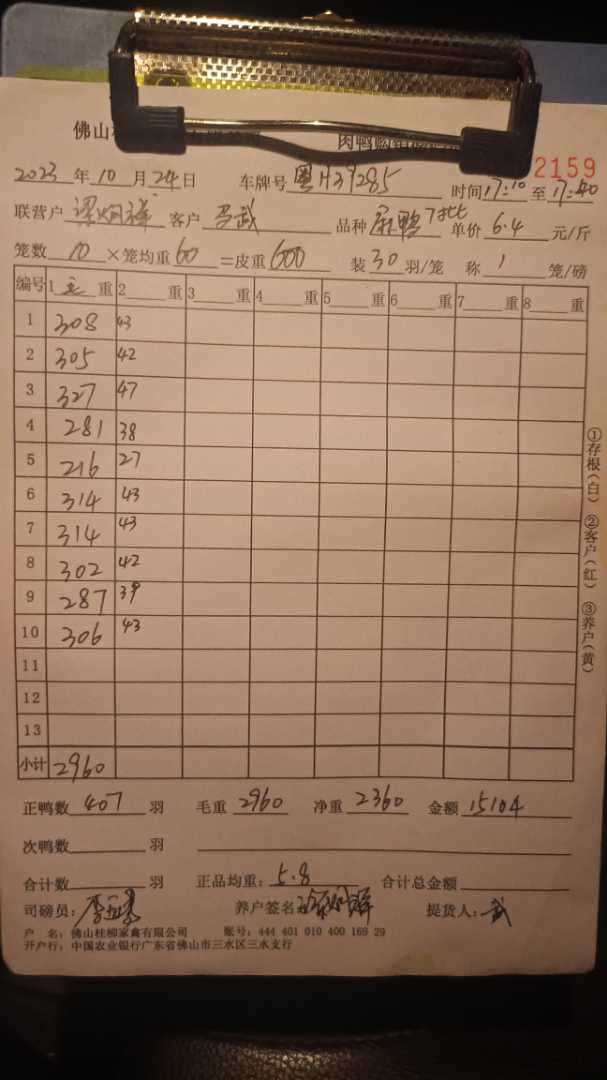 佛山桂 肉鸭购销
2159
2023年10月24日 车牌号 粤H39285 时间17:10至17:40
联营户 梁炯祥 客户 马武 品种 鸭 单价6.4元/斤
笼数10×笼均重60=皮重600 装30羽/笼 称1笼/磅
编号 1 毛 重 2 重 3 重 4 重 5 重 6 重 7 重 8 重
1 308 43
2 305 42
3 327 47
4 281 38
5 216 27
6 314 43
7 314 43
8 302 42
9 287 39
10 306 43
11
12
13
小计 2960
正鸭数 407 羽 毛重 2960 净重 2360 金额 15104
次鸭数 羽
合计数 羽 正品均重:5.8 合计总金额
司磅员: 养户签名 提货人:武
户 名: 佛山桂柳家禽有限公司 账号: 444 401 010 400 169 29
开户行: 中国农业银行广东省佛山市三水区三水支行
①存根(白) ②客户(红) ③养户(黄)